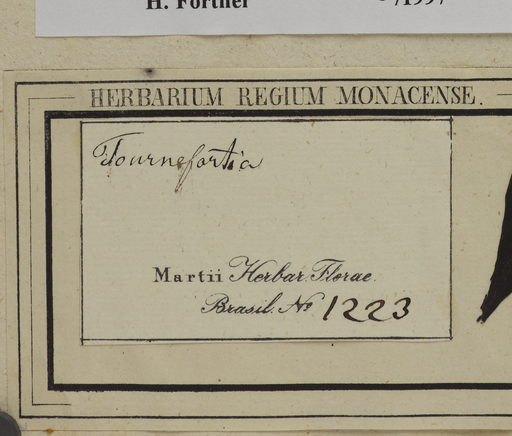 H. Förther
HERBARIUM REGIUM MONACENSE.
Tournefortia
Martii Herbar. Florae
Brasil. No 1223